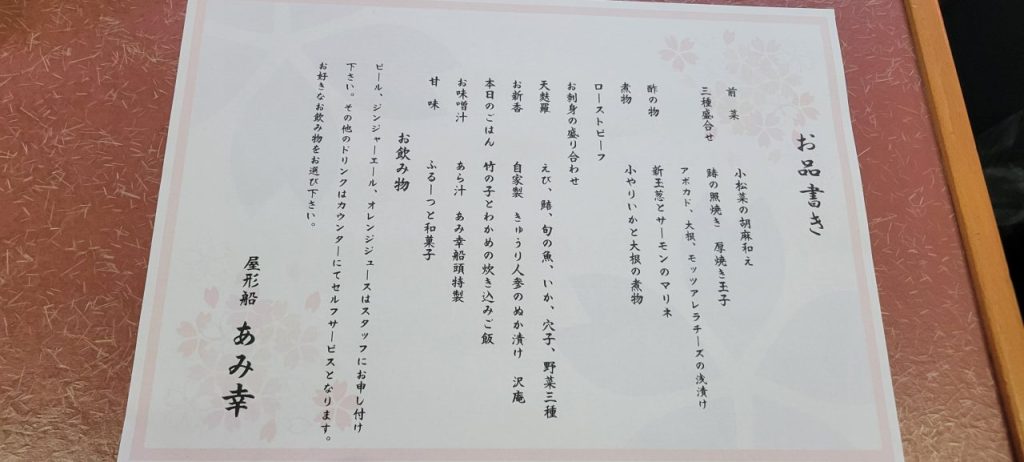 お品書き
前菜 小松菜の胡麻和え
三種盛合せ 鰆の照焼き 厚焼き玉子
アボカド、大根、モッツアレラチーズの浅漬け
酢の物 新玉葱とサーモンのマリネ
煮物 小やりいかと大根の煮物
ローストビーフ
お刺身の盛り合わせ
天麩羅 えび、鱚、旬の魚、いか、穴子、野菜三種
お新香 自家製 きゅうり人参のぬか漬け 沢庵
本日のごはん 竹の子とわかめの炊き込みご飯
お味噌汁 あら汁 あみ幸船頭特製
甘味 ふるーつと和菓子
お飲み物
ビール、ジンジャーエール、オレンジジュースはスタッフにお申し付け
下さい。その他のドリンクはカウンターにてセルフサービスとなります。
お好きなお飲み物をお選び下さい。
屋形船 あみ幸